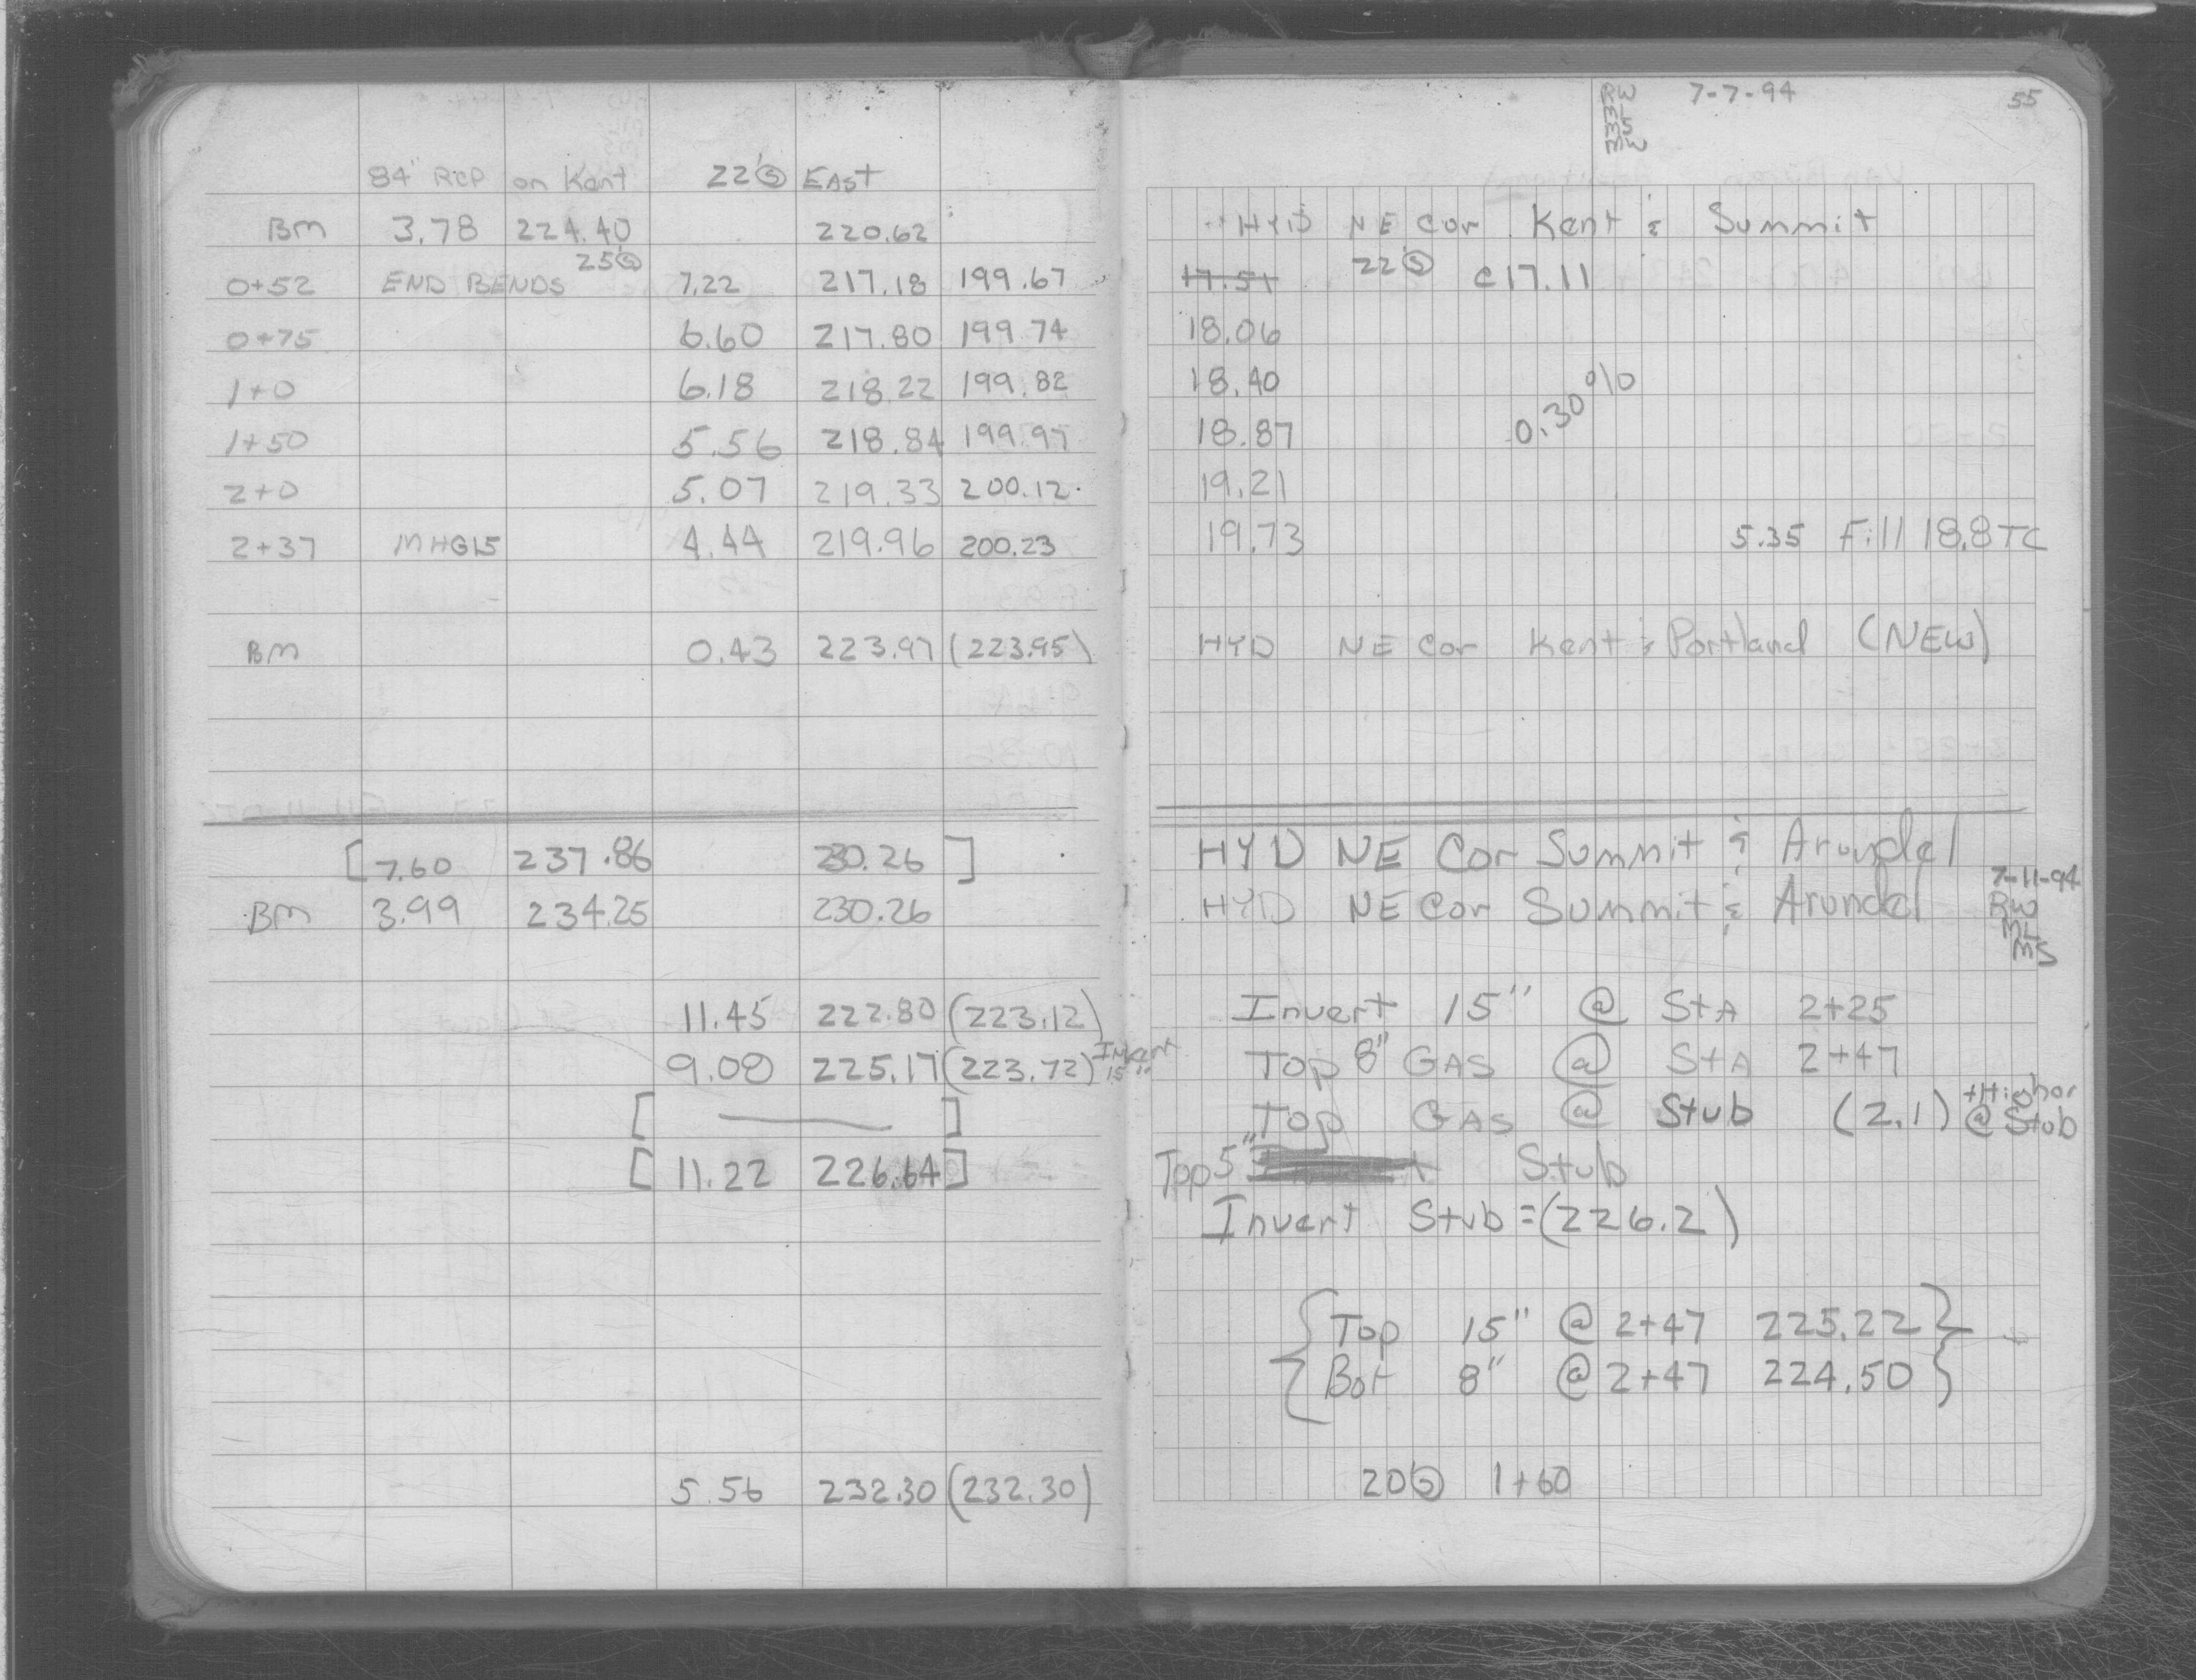 84" RCP on Kent 22' Ⓢ EAST
BM 3.78 224.40 220.62
0+52 END BENDS 25' Ⓢ 7.22 217.18 199.67
0+75 6.60 217.80 199.74
1+0 6.18 218.22 199.82
1+50 5.56 218.84 199.97
2+0 5.07 219.33 200.12
2+37 MHG15 4.44 219.96 200.23
BM 0.43 223.97 (223.95)
[7.60 237.86 230.26]
BM 3.99 234.25 230.26
11.45 222.80 (223.12)
9.08 225.17 (223.72) Invert 15"
[ — ]
[11.22 226.64]
5.56 232.30 (232.30)
RW 7-7-94 55
ML
MS
MW
HYD NE Cor Kent & Summit
17.51 22' Ⓢ C17.11
18.06
18.40
18.87 0.30%
19.21
19.73 5.35 Fill 18.8 TC
HYD NE Cor Kent & Portland (NEW)
HYD NE Cor Summit & Arundel
HYD NE Cor Summit & Arundel
7-11-94
RW
ML
MS
Invert 15" @ StA 2+25
Top 8" GAS @ StA 2+47
Top GAS @ Stub (2.1) +Higher @ Stub
Top 5" Stub
Invert Stub = (226.2)
{Top 15" @ 2+47 225.22}
{Bot 8" @ 2+47 224.50}
20 Ⓢ 1+60